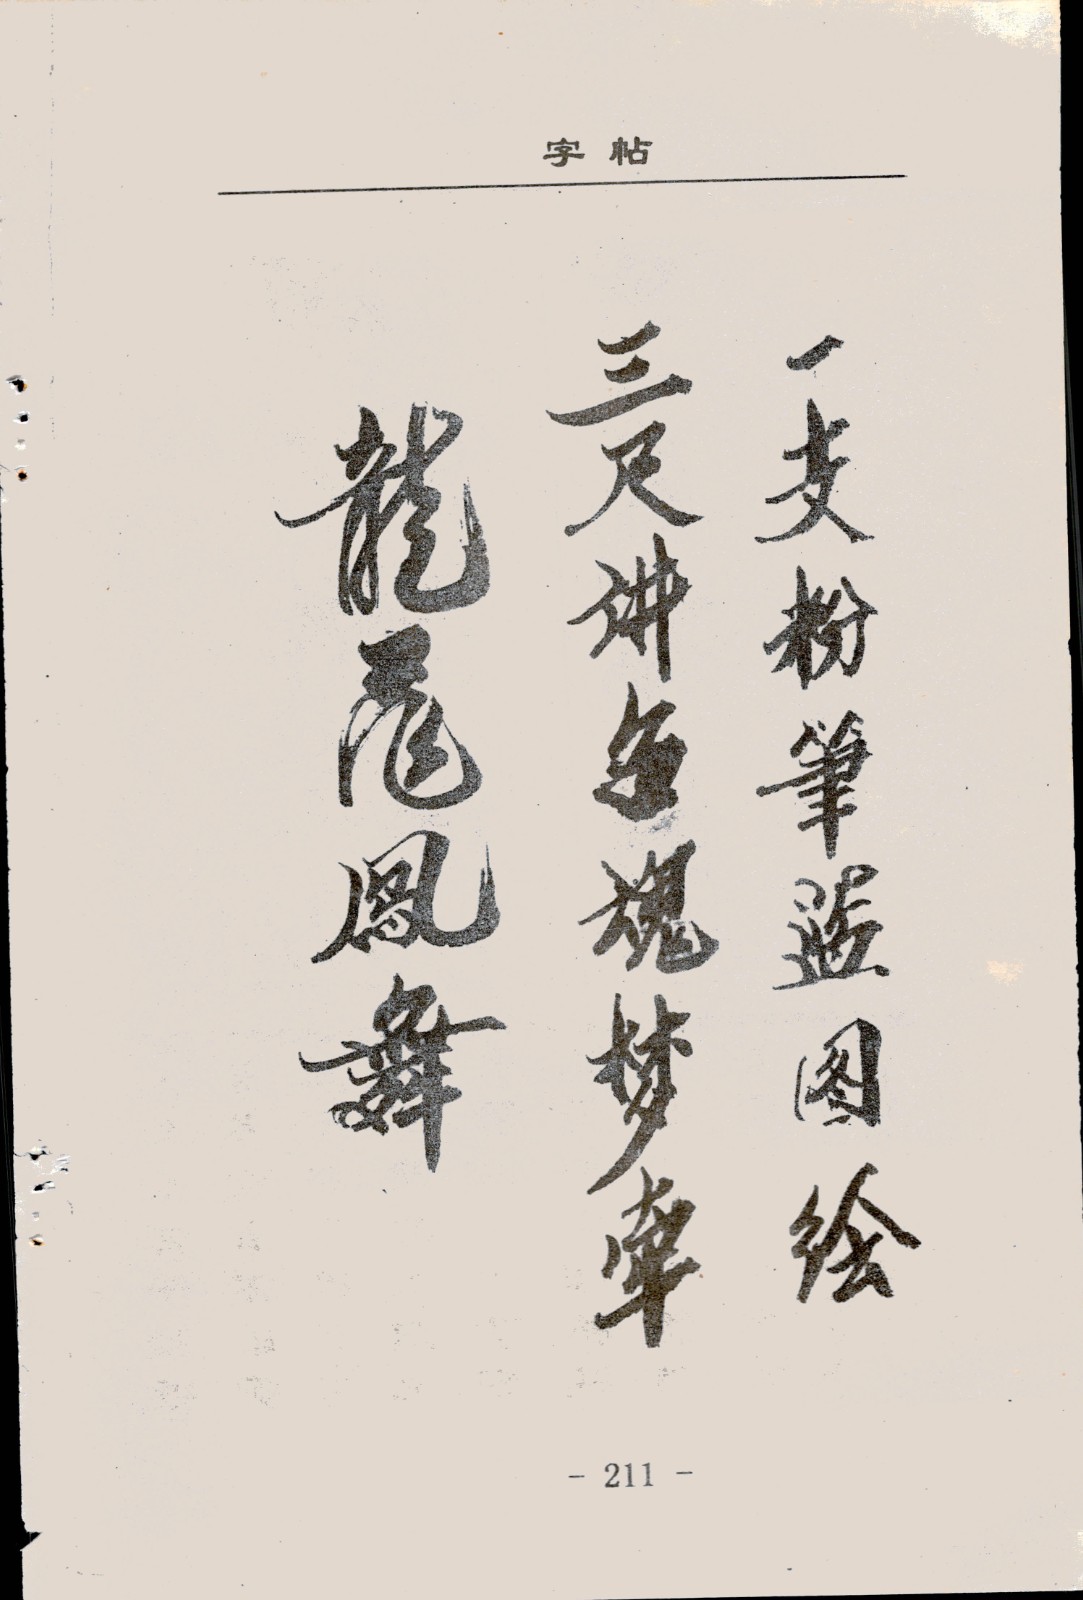 字帖
一支粉筆蓝图绘
三尺讲台魂梦牵
龍飛鳳舞
- 211 -